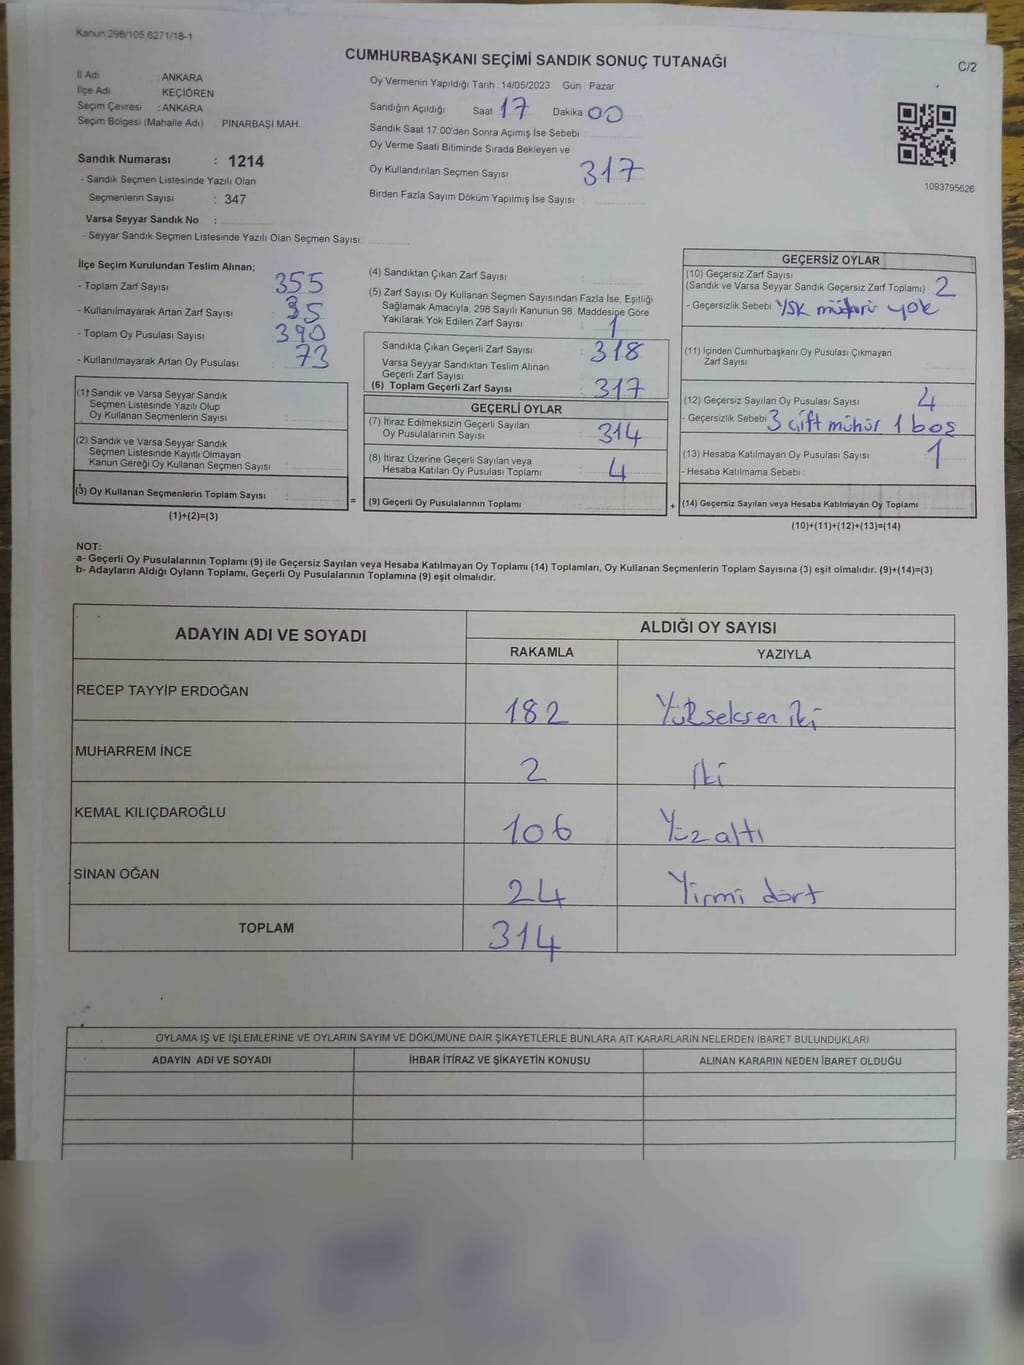 Kanun 298/105.6271/18-1
CUMHURBAŞKANI SEÇİMİ SANDIK SONUÇ TUTANAĞI
C/2
İl Adı ANKARA
İlçe Adı KEÇİÖREN
Seçim Çevresi : ANKARA
Seçim Bölgesi (Mahalle Adı) PINARBAŞI MAH.
Sandık Numarası : 1214
- Sandık Seçmen Listesinde Yazılı Olan
Seçmenlerin Sayısı : 347
Varsa Seyyar Sandık No :
- Seyyar Sandık Seçmen Listesinde Yazılı Olan Seçmen Sayısı
Oy Vermenin Yapıldığı Tarih : 14/05/2023 Gün : Pazar
Sandığın Açıldığı Saat 17 Dakika 00
Sandık Saat 17 00'den Sonra Açımış İse Sebebi
Oy Verme Saati Bitiminde Sırada Bekleyen ve
Oy Kullandırılan Seçmen Sayısı 317
Birden Fazla Sayım Döküm Yapılmış İse Sayısı
1093795626
İlçe Seçim Kurulundan Teslim Alınan;
- Toplam Zarf Sayısı 355
- Kullanılmayarak Artan Zarf Sayısı 35
- Toplam Oy Pusulası Sayısı 390
- Kullanılmayarak Artan Oy Pusulası 73
(1) Sandık ve Varsa Seyyar Sandık
Seçmen Listesinde Yazılı Olup
Oy Kullanan Seçmenlerin Sayısı
(2) Sandık ve Varsa Seyyar Sandık
Seçmen Listesinde Kayıtlı Olmayan
Kanun Gereği Oy Kullanan Seçmen Sayısı
(3) Oy Kullanan Seçmenlerin Toplam Sayısı
(1)+(2)=(3)
(4) Sandıktan Çıkan Zarf Sayısı
(5) Zarf Sayısı Oy Kullanan Seçmen Sayısından Fazla İse, Eşitliği
Sağlamak Amacıyla, 298 Sayılı Kanunun 98. Maddesine Göre
Yakılarak Yok Edilen Zarf Sayısı : 1
Sandıkta Çıkan Geçerli Zarf Sayısı : 318
Varsa Seyyar Sandıktan Teslim Alınan
Geçerli Zarf Sayısı
(6) Toplam Geçerli Zarf Sayısı : 317
GEÇERLİ OYLAR
(7) İtiraz Edilmeksizin Geçerli Sayılan
Oy Pusulalarının Sayısı 314
(8) İtiraz Üzerine Geçerli Sayılan veya
Hesaba Katılan Oy Pusulası Toplamı 4
= (9) Geçerli Oy Pusulalarının Toplamı
GEÇERSİZ OYLAR
(10) Geçersiz Zarf Sayısı
(Sandık ve Varsa Seyyar Sandık Geçersiz Zarf Toplamı) 2
- Geçersizlik Sebebi YSK mührü yok
(11) İçinden Cumhurbaşkanı Oy Pusulası Çıkmayan
Zarf Sayısı
(12) Geçersiz Sayılan Oy Pusulası Sayısı 4
- Geçersizlik Sebebi 3 çift mühür 1 boş
(13) Hesaba Katılmayan Oy Pusulası Sayısı 1
- Hesaba Katılmama Sebebi :
+ (14) Geçersiz Sayılan veya Hesaba Katılmayan Oy Toplamı
(10)+(11)+(12)+(13)=(14)
NOT:
a- Geçerli Oy Pusulalarının Toplamı (9) ile Geçersiz Sayılan veya Hesaba Katılmayan Oy Toplamı (14) Toplamları, Oy Kullanan Seçmenlerin Toplam Sayısına (3) eşit olmalıdır. (9)+(14)=(3)
b- Adayların Aldığı Oyların Toplamı, Geçerli Oy Pusulalarının Toplamına (9) eşit olmalıdır.
ADAYIN ADI VE SOYADI
ALDIĞI OY SAYISI
RAKAMLA YAZIYLA
RECEP TAYYİP ERDOĞAN 182 Yüzseksen iki
MUHARREM İNCE 2 iki
KEMAL KILIÇDAROĞLU 106 Yüz altı
SİNAN OĞAN 24 Yirmi dört
TOPLAM 314
OYLAMA İŞ VE İŞLEMLERİNE VE OYLARIN SAYIM VE DÖKÜMÜNE DAİR ŞİKAYETLERLE BUNLARA AİT KARARLARIN NELERDEN İBARET BULUNDUKLARI
ADAYIN ADI VE SOYADI İHBAR İTİRAZ VE ŞİKAYETİN KONUSU ALINAN KARARIN NEDEN İBARET OLDUĞU